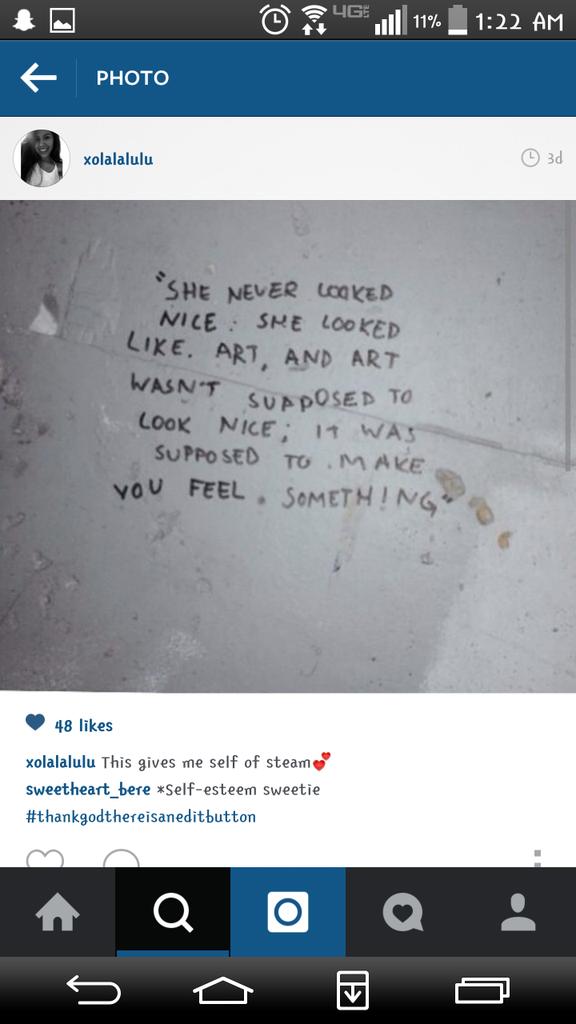 4G LTE 11% 1:22 AM
PHOTO
xolalalulu 3d
"SHE NEVER LOOKED
NICE. SHE LOOKED
LIKE. ART, AND ART
WASN'T SUPPOSED TO
LOOK NICE; IT WAS
SUPPOSED TO. MAKE
YOU FEEL. SOMETHING"
48 likes
xolalalulu This gives me self of steam💕
sweetheart_bere *Self-esteem sweetie
#thankgodthereisaneditbutton